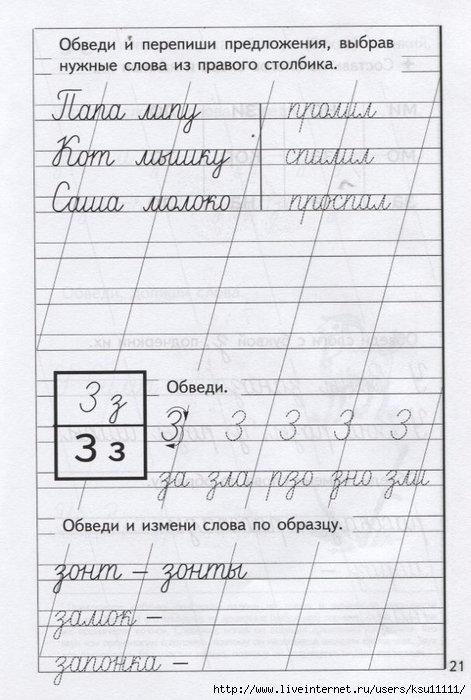 Обведи и перепиши предложения, выбрав
нужные слова из правого столбика.
Папа липу пролил
Кот мышку спилил
Саша молоко проспал
З з
Обведи.
З З З З З
З з
за зла рзо зно зми
Обведи и измени слова по образцу.
зонт – зонты
замок –
запонка –
21
http://www.liveinternet.ru/users/ksu11111/